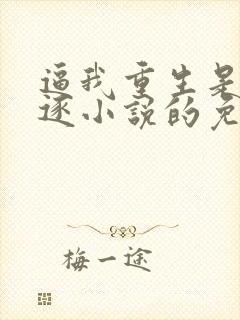 逼我重生是
逐小说的免
梅一途